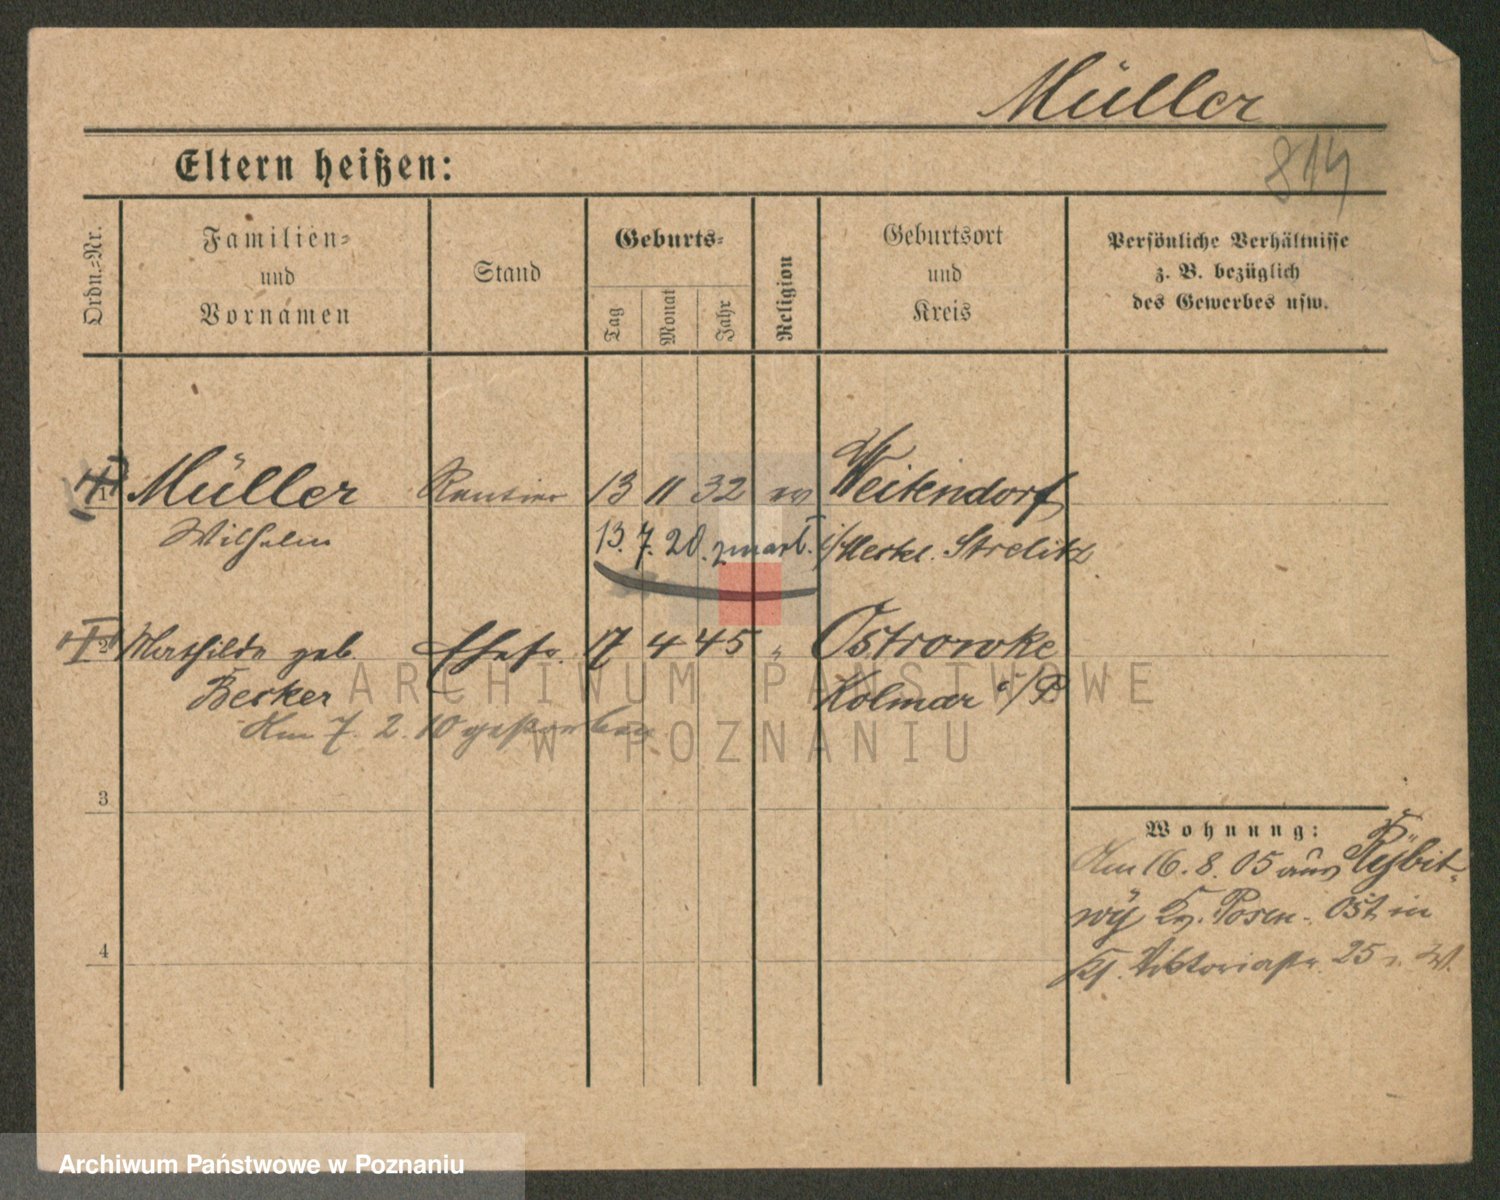 Müller
814
Eltern heißen:
Ordn.-Nr.
Familien-
und
Vornamen
Stand
Geburts-
Tag
Monat
Jahr
Religion
Geburtsort
und
Kreis
Persönliche Verhältnisse
z. B. bezüglich
des Gewerbes usw.
1 Müller Rentier 13 11 32 ev Weitendorf
Wilhelm 13. 7. 20. zmarł. i/Meckl. Strelitz
2 Mathilde geb Ehefr. 17 4 45 " Ostrowke
Becker Kolmar i/P
Am 7. 2. 10 gestorben
3
4
Wohnung:
Am 16. 8. 05 aus Rybit-
wy Kr. Posen-Ost in
Viktoriastr. 25
ARCHIWUM PAŃSTWOWE
W POZNANIU
Archiwum Państwowe w Poznaniu